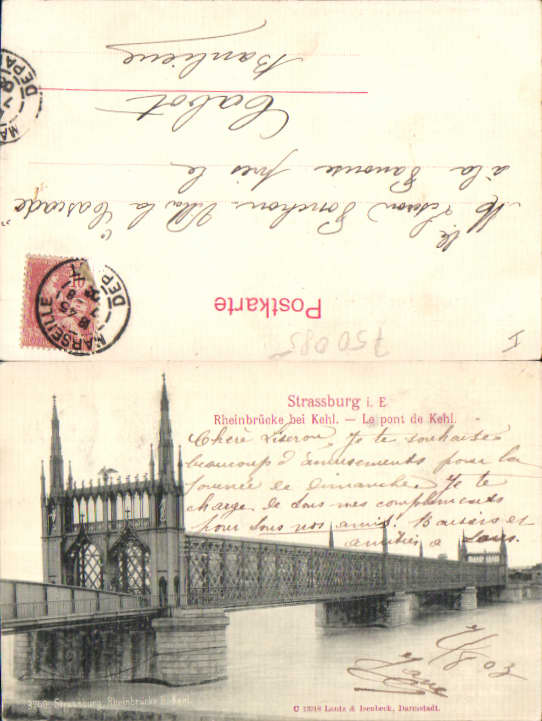 Postkarte
75008
I
MARSEILLE
DÉPART
8 45
Mlle Liseron Ponchon Villa la Cascade
à la Panouse près le
Cabot
Banlieue
Strassburg i. E
Rheinbrücke bei Kehl. — Le pont de Kehl.
Chère Liseron, Je te souhaite
beaucoup d'amusements pour la
journée de dimanche. Je te
charge de tous mes compliments
pour tous nos amis. Baisers et
amitiés à tous.
7/8 03
Jane
3760 Strassburg, Rheinbrücke b. Kehl.
13248 Lautz & Isenbeck, Darmstadt.